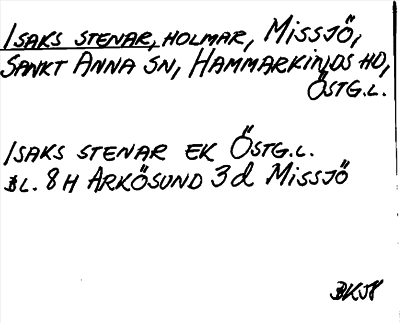 ISAKS STENAR, HOLMAR, MISSJÖ,
SANKT ANNA SN, HAMMARKINDS HD,
ÖSTG.L.
ISAKS STENAR EK ÖSTG.L.
BL. 8H ARKÖSUND 3d MISSJÖ